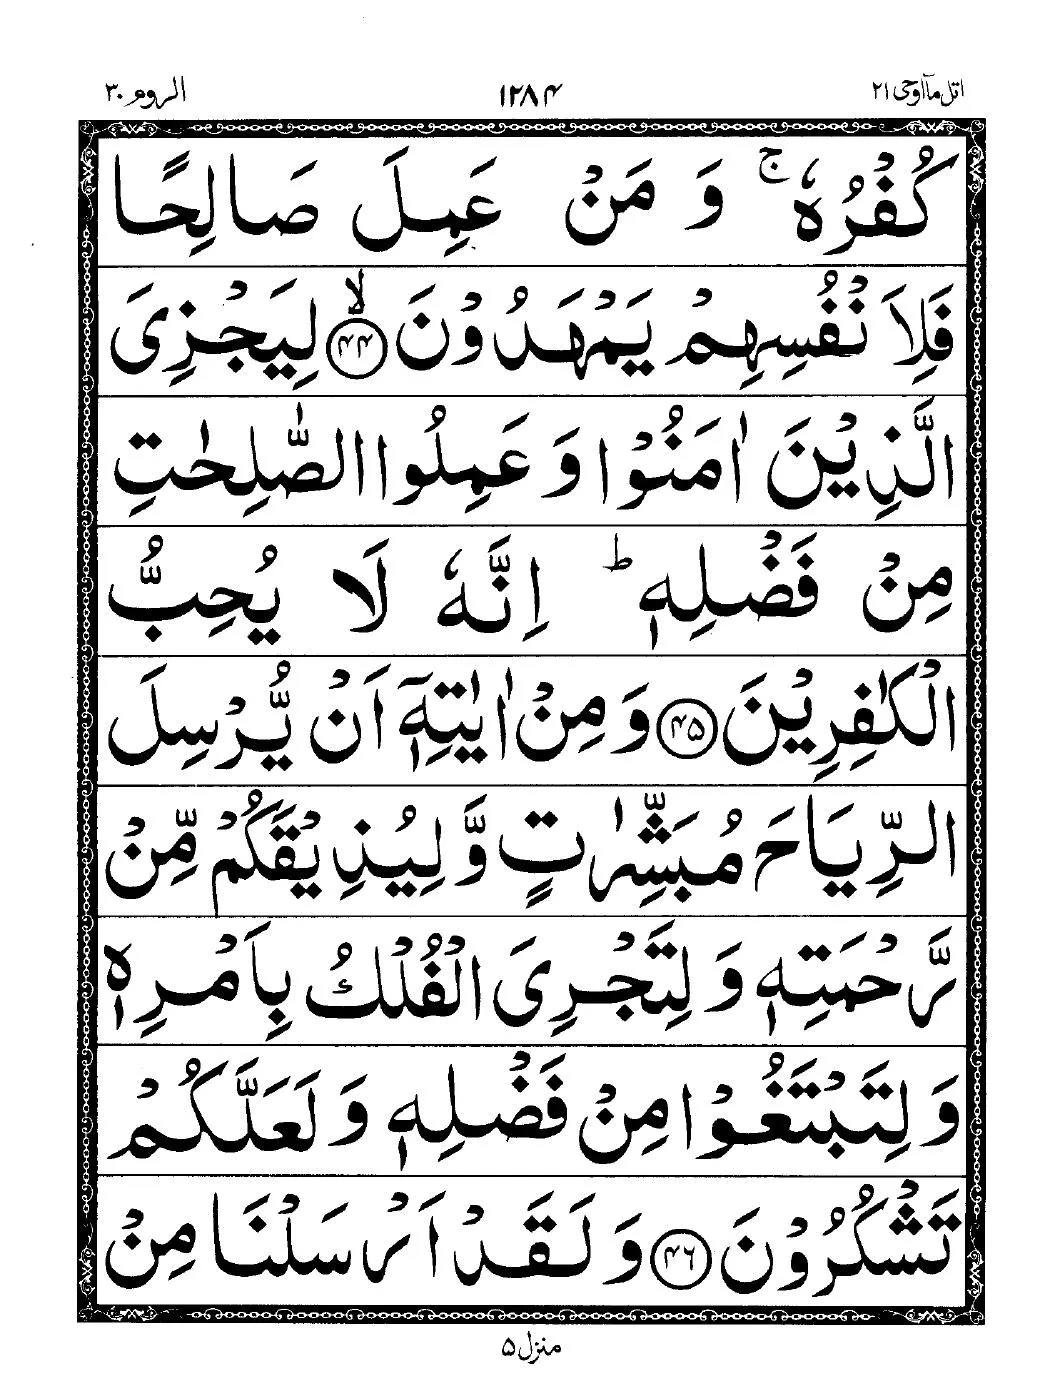 اتل مآ اوحی ۲۱ ۱۲۸۴ الروم ۳۰
كُفْرُهٗ ۚ وَ مَنْ عَمِلَ صَالِحًا
فَلِاَنْفُسِهِمْ يَمْهَدُوْنَ ﴿۴۴﴾ ۙ لِيَجْزِىَ
الَّذِيْنَ اٰمَنُوْا وَ عَمِلُوا الصّٰلِحٰتِ
مِنْ فَضْلِهٖ ؕ اِنَّهٗ لَا يُحِبُّ
الْكٰفِرِيْنَ ﴿۴۵﴾ وَ مِنْ اٰيٰتِهٖٓ اَنْ يُّرْسِلَ
الرِّيَاحَ مُبَشِّرٰتٍ وَّ لِيُذِيْقَكُمْ مِّنْ
رَّحْمَتِهٖ وَ لِتَجْرِىَ الْفُلْكُ بِاَمْرِهٖ
وَ لِتَبْتَغُوْا مِنْ فَضْلِهٖ وَ لَعَلَّكُمْ
تَشْكُرُوْنَ ﴿۴۶﴾ وَ لَقَدْ اَرْسَلْنَا مِنْ
منزل ۵